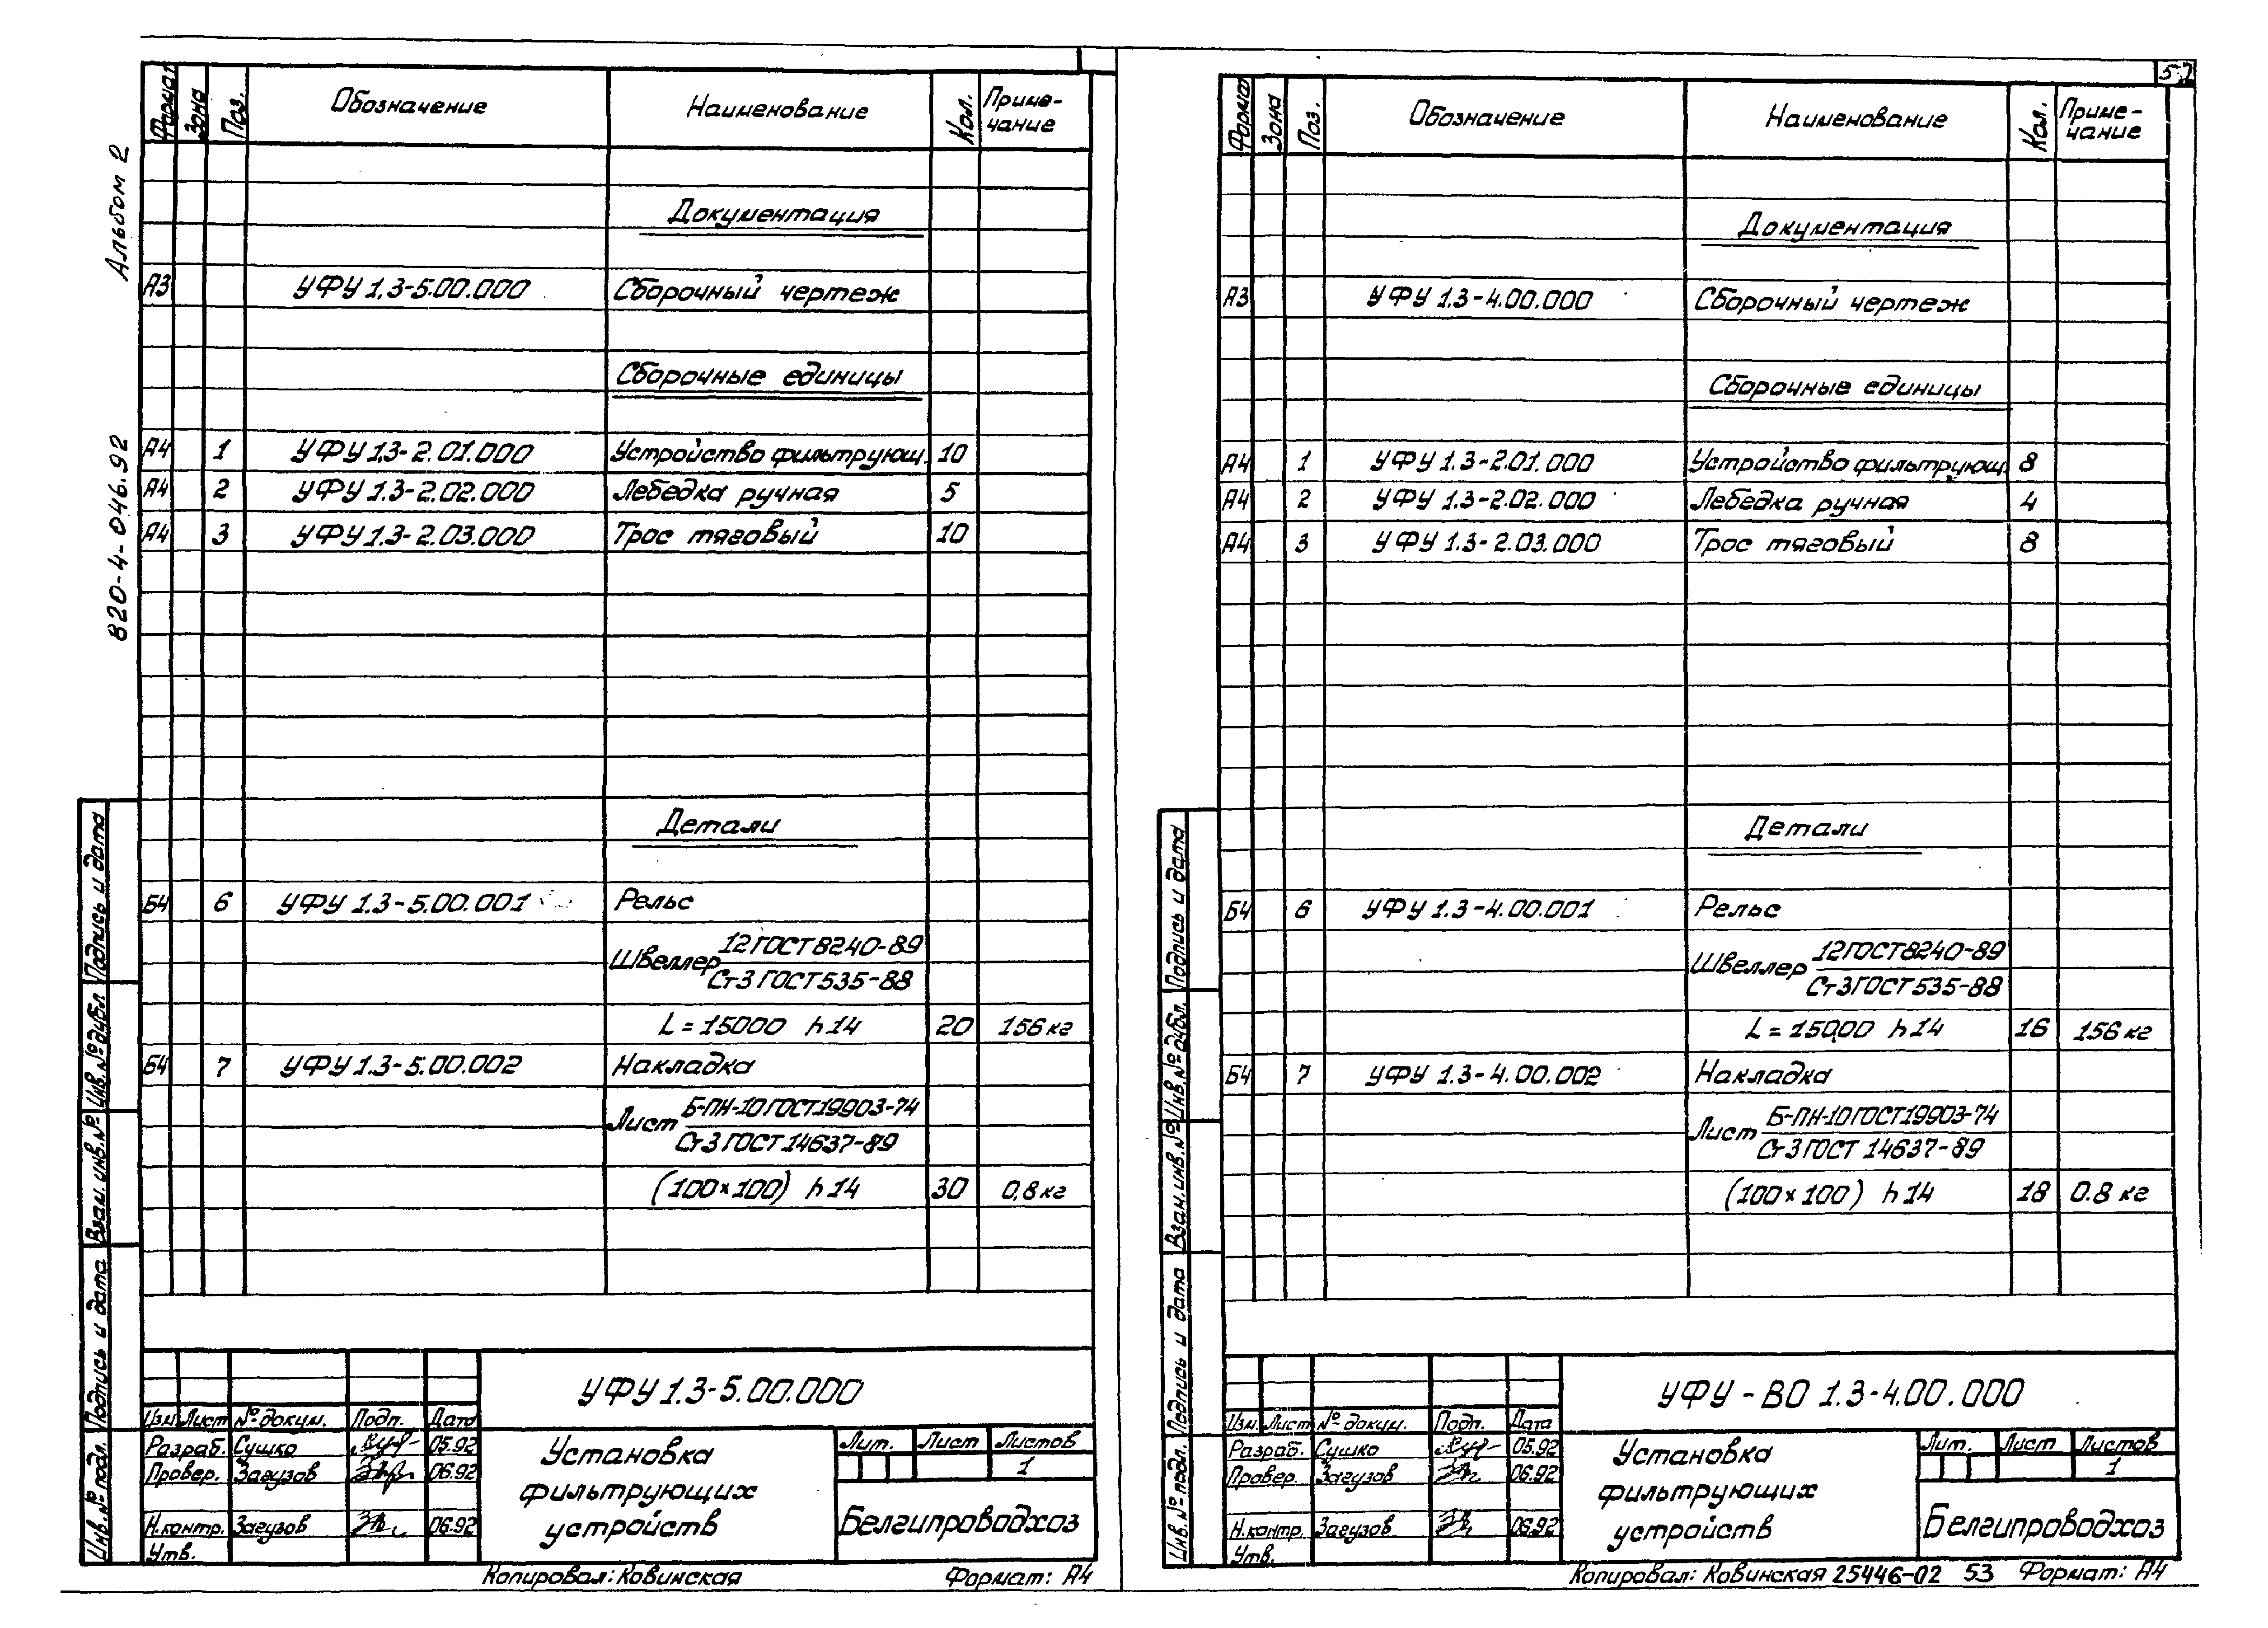 Альбом 2
820-4-046.92
Формат Зона Поз. Обозначение Наименование Кол. Приме-
чание
Документация
А3 УФУ 1.3-5.00.000 Сборочный чертеж
Сборочные единицы
А4 1 УФУ 1.3-2.01.000 Устройство фильтрующ. 10
А4 2 УФУ 1.3-2.02.000 Лебедка ручная 5
А4 3 УФУ 1.3-2.03.000 Трос тяговый 10
Детали
Б4 6 УФУ 1.3-5.00.001 Рельс
Швеллер 12 ГОСТ 8240-89
Ст3 ГОСТ 535-88
L = 15000 h14 20 156 кг
Б4 7 УФУ 1.3-5.00.002 Накладка
Лист Б-ПН-10 ГОСТ 19903-74
Ст3 ГОСТ 14637-89
(100×100) h14 30 0,8 кг
Инв. № подл. Подпись и дата Взам. инв. № Инв. № дубл Подпись и дата
УФУ 1.3-5.00.000
Изм Лист № докум. Подп. Дата
Разраб. Сушко 05.92
Провер. Загузов 06.92
Н. контр. Загузов 06.92
Утв.
Установка
фильтрующих
устройств
Лит. Лист Листов
1
Белгипроводхоз
Копировал: Ковинская Формат: А4
Формат Зона Поз. Обозначение Наименование Кол. Приме-
чание
Документация
А3 УФУ 1.3-4.00.000 Сборочный чертеж
Сборочные единицы
А4 1 УФУ 1.3-2.01.000 Устройство фильтрующ. 8
А4 2 УФУ 1.3-2.02.000 Лебедка ручная 4
А4 3 УФУ 1.3-2.03.000 Трос тяговый 8
Детали
Б4 6 УФУ 1.3-4.00.001 Рельс
Швеллер 12 ГОСТ 8240-89
Ст3 ГОСТ 535-88
L = 15000 h14 16 156 кг
Б4 7 УФУ 1.3-4.00.002 Накладка
Лист Б-ПН-10 ГОСТ 19903-74
Ст3 ГОСТ 14637-89
(100×100) h14 18 0.8 кг
Инв. № подл. Подпись и дата Взам. инв. № Инв. № дубл. Подпись и дата
УФУ-ВО 1.3-4.00.000
Изм. Лист № докум. Подп. Дата
Разраб. Сушко 05.92
Провер. Загузов 06.92
Н. контр. Загузов 06.92
Утв.
Установка
фильтрующих
устройств
Лит. Лист Листов
1
Белгипроводхоз
Копировал: Ковинская 25446-02 53 Формат: А4